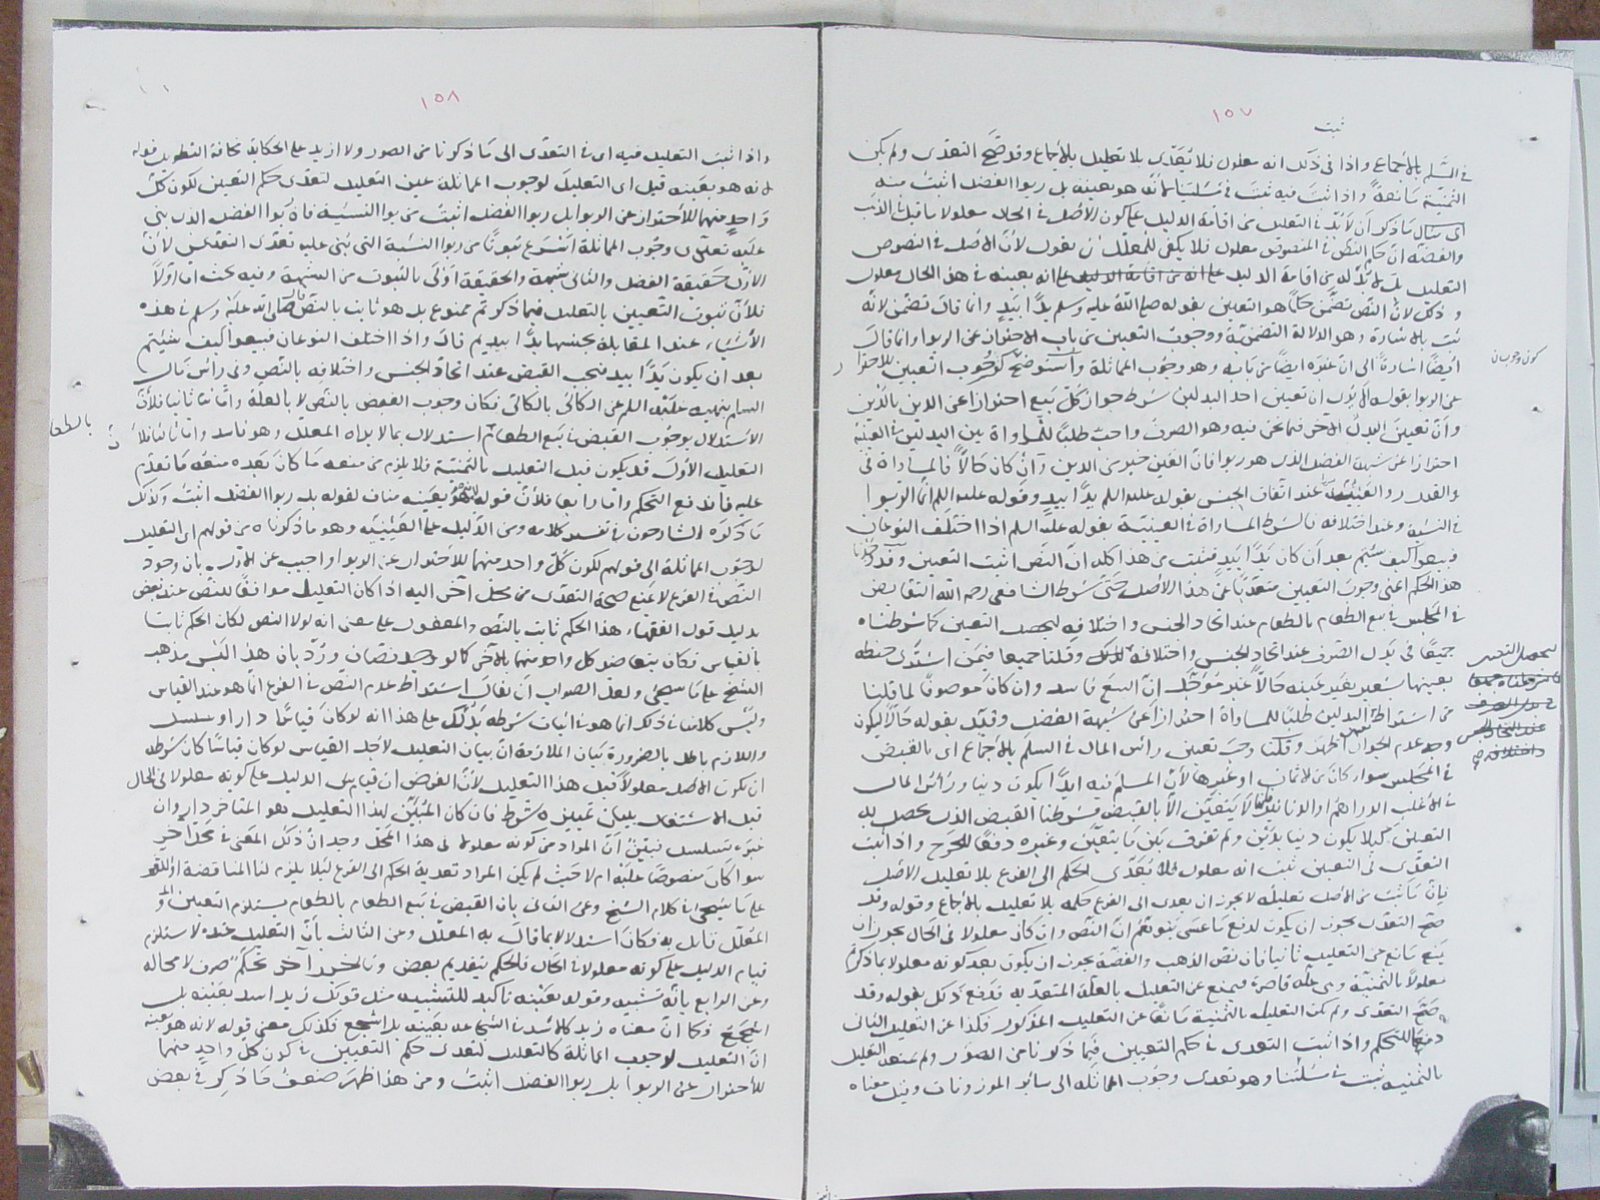 ١٥٧
ثبت
في السلم بالاجماع واذا في ذلك انه معلول فلا يتعدى بلا تعليل بالاجماع وقد صح التعدى ولم يكن
الثمنية مانعة واذا ثبت فيه ثبت في مسئلتنا لانه هو بعينه بل ربوا الفضل اثبت منه
اى مثال ما ذكر أن لا بد في التعليل من اقامة الدليل على كون الأصل في الحال معلولا ما قيل في الذهب
والفضة ان حكم النص في المنصوص معلول فلا يكفى للمعلل ان يقول لأن الأصل في النصوص
التعليل بل لا بد له من اقامة الدليل على انه بعينه في هذا الحال معلول
وذلك لأن النص تضمن حكما هو التعيين بقوله صلى الله عليه وسلم يدا بيد وانما قال تضمن لانه
ثبت بالاشارة وهو الدلالة التضمنية ووجوب التعيين من باب الاحتراز عن الربوا وانما قال
ايضا اشارة الى ان غيره ايضا من بابه وهو وجوب المماثلة واستوضح كون وجوب التعيين للاحتراز
كون وجوب ان
عن الربوا بقوله الا يرى ان تعيين احد البدلين شرط جواز كل بيع احترازا عن الدين بالدين
وان تعيين البدل الآخر فيما نحن فيه وهو الصرف واجب طلبا للمساواة بين البدلين في العينية
احترازا عن شبهة الفضل الذى هو ربوا فان العين خير من الدين وان كان حالا فالمساواة في
والقدر والعينية عند اتفاق الجنس بقوله عليه السلم يدا بيد وقوله عليه السلم انما الربوا
في النسية وعند اختلافه فالشرط المساواة في العينية بقوله عليه السلم اذا اختلف النوعان
فبيعوا كيف شئتم بعد أن كان يدا بيد فثبت من هذا كله ان النص اثبت التعيين وقد وجدنا
هذا الحكم اعنى وجوب التعيين متعديا عن هذا الأصل حتى شرط الشافعى رحمه الله التقابض
في المجلس في بيع الطعام بالطعام عند اتحاد الجنس واختلافه ليحصل التعيين كما شرطناه
جميعا في بدل الصرف عند اتحاد الجنس واختلافه وقلنا جميعا فيمن اشترى حنطة
ليحصل التعيين
بعينها بشعير بغير عينه حالا غير مؤجل ان البيع فاسد وان كان موصوفا لما قلنا
من اشتراط البدلين طلبا للمساواة احترازا عن شبهة الفضل وقيد بقوله حالا ليكون
وجه عدم الجواز اظهر وقلنا وجب تعيين رأس المال في السلم بالاجماع اى بالقبض
في المجلس سواء كان من الاثمان او غيرها لأن المسلم فيه ابدا يكون دينا ورأس المال
في الاغلب الدراهم او الدنانير لا يتعين الا بالقبض فشرطنا القبض الذى يحصل به
التعيين كيلا يكون دينا بدين ولم تفرق بين ما يتعين وغيره دفعا للحرج واذا ثبت
التعدى في التعيين ثبت انه معلول فلا يتعدى الحكم الى الفرع بلا تعليل الأصل
فان ما ثبت من الأصل تعليله لا يجوز ان يعدى الى الفرع حكمه بلا تعليل بالاجماع وقوله وقد
صح التعدى يجوز ان يكون لدفع ما عسى يتوهم ان النص وان كان معلولا في الحال يجوز ان
يمنع مانع عن التعليل ثانيا فان نص الذهب والفضة يجوز ان يكون بعد كونه معلولا بما ذكرتم
معلولا بالثمنية وهى علة قاصرة فيمنع عن التعليل بالعلة المتعدية فدفع ذلك بقوله وقد
صح التعدى ولم تكن التعليل بالثمنية مانعا عن التعليل المذكور فكذا عن التعليل الثانى
دفعا للتحكم واذا ثبت التعدى في حكم التعيين فيما ذكرنا من الصور ولم يمنعه التعليل
بالثمنية ثبت في مسئلتنا وهو تعدى وجوب المماثلة الى سائر الموزونات وقيل معناه
١٥٨
واذا ثبت التعليل فيه اى في التعدى الى ما ذكرنا من الصور ولا ازيد على الحكاية مخافة التطويل قوله
لانه هو بعينه قيل اى التعليل لوجوب المماثلة عين التعليل لتعدى حكم التعيين لكون كل
واحد منهما للاحتراز عن الربوا بل ربوا الفضل اثبت من ربوا النسية فان ربوا الفضل الذى بنى
عليه تعدى وجوب المماثلة اسرع ثبوتا من ربوا النسية التى بنى عليه تعدى التعيين لأن
الاول حقيقة الفضل والثانى شبهة والحقيقة اولى بالثبوت من الشبهة وفيه بحث اما اولا
فلأن ثبوت التعيين بالتعليل فيما ذكرتم ممنوع بل هو ثابت بالنص قال صلى الله عليه وسلم في هذه
الأشياء عند المقابلة بجنسها يدا بيد ثم قال واذا اختلف النوعان فبيعوا كيف شئتم
بعد ان يكون يدا بيد فيجب القبض عند اتحاد الجنس واختلافه بالنص وفى رأس مال
السلم بنهيه عليه السلم عن الكالئ بالكالئ فكان وجوب القبض بالنص لا بالعلة واما ثانيا فلأن
الاستدلال بوجوب القبض في بيع الطعام استدلال بما لا يراه المعلل وهو فاسد واما ثالثا فلأن
بالطعا
التعليل الأول قد يكون قبل التعليل بالثمنية فلا يلزم من منعه ما كان بعده منعه ما تقدم
عليه فاندفع التحكم واما رابعا فلأن قوله لانه هو بعينه مناف لقوله بل ربوا الفضل اثبت وكذلك
ما ذكره الشارحون في تفسير كلامه ومن الدليل على العينية وهو ما ذكرناه من قولهم اى التعليل
لوجوب المماثلة الى قولهم لكون كل واحد منهما للاحتراز عن الربوا واجيب عن الاول بان وجود
النص في الفرع لا يمنع صحة التعدى من محل آخر اليه اذا كان التعليل موافقا للنص عند بعض
بدليل قول الفقهاء هذا الحكم ثابت بالنص والمعقول على معنى انه لولا النص لكان الحكم ثابتا
بالقياس فكان يتعاضد كل واحد منهما بالآخر كما لو وجد نصان ورد بان هذا ليس مذهب
الشيخ على ما سيجئ ولعل الصواب ان يقال اشتراط عدم النص في الفرع انما هو عند القياس
وليس كلامنا في ذلك انما هو في اثبات شرطه يدلك على هذا انه لو كان قياسا دار او تسلسل
واللازم باطل بالضرورة بيان الملازمة ان بيان التعليل لأجل القياس لو كان قياسا كان شرطه
ان يكون الاصل معلولا قبل هذا التعليل لأن الغرض ان قيام الدليل على كونه معلولا في الحال
قبل الاشتغال ببيان تمييزه شرط فان كان المبين لهذا التعليل هو المتأخر دار وان
غيره تسلسل فتبين ان المراد من كونه معلولا في هذا المحل وجد ان ذلك المعنى في محل آخر
سواء كان منصوصا عليه ام لا حيث لم يكن المراد تعدية الحكم الى الفرع لئلا يلزم لنا المناقضة
على ما سيجئ في كلام الشيخ وعن الثانى بان القبض في بيع الطعام بالطعام يستلزم التعيين
المعلل قائل به فكان استدلالا بما قال به المعلل وعن الثالث بأن التعليل عنده لا يستلزم
قيام الدليل على كونه معلولا في الحال فالحكم بتقديم بعض وتأخير آخر تحكم صرف لا محالة
وعن الرابع بانه تشبيه وقوله بعينه تأكيد للتشبيه مثل قولك زيد اسد بعينه بل
اشجع وكما ان معناه زيد كالاسد في الشجاعة بعينه بل اشجع فكذلك معنى قوله لانه هو بعينه
ان التعليل لوجوب المماثلة كالتعليل لتعدى حكم التعيين في كون كل واحد منهما
للاحتراز عن الربوا بل ربوا الفضل اثبت ومن هذا ظهر ضعف ما ذكر في بعض